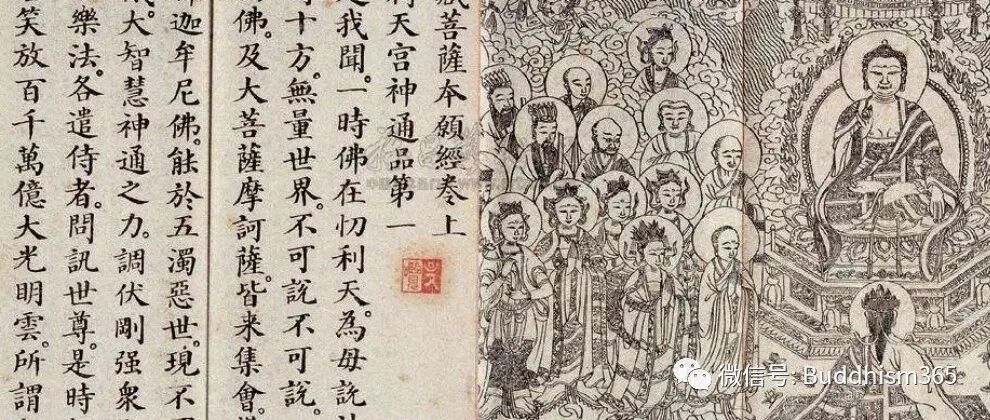 菩薩本願經卷上
利天宮神通品第一
是我聞。一時佛在忉利天。為母說
十方。無量世界。不可說不可說。
佛。及大菩薩摩訶薩。皆来集會。
迦牟尼佛。能於五濁惡世。現不
大智慧神通之力。調伏剛强衆
樂法。各遣侍者。問訊世尊。是時
笑放百千萬億大光明雲。所謂
微信号: Buddhism365